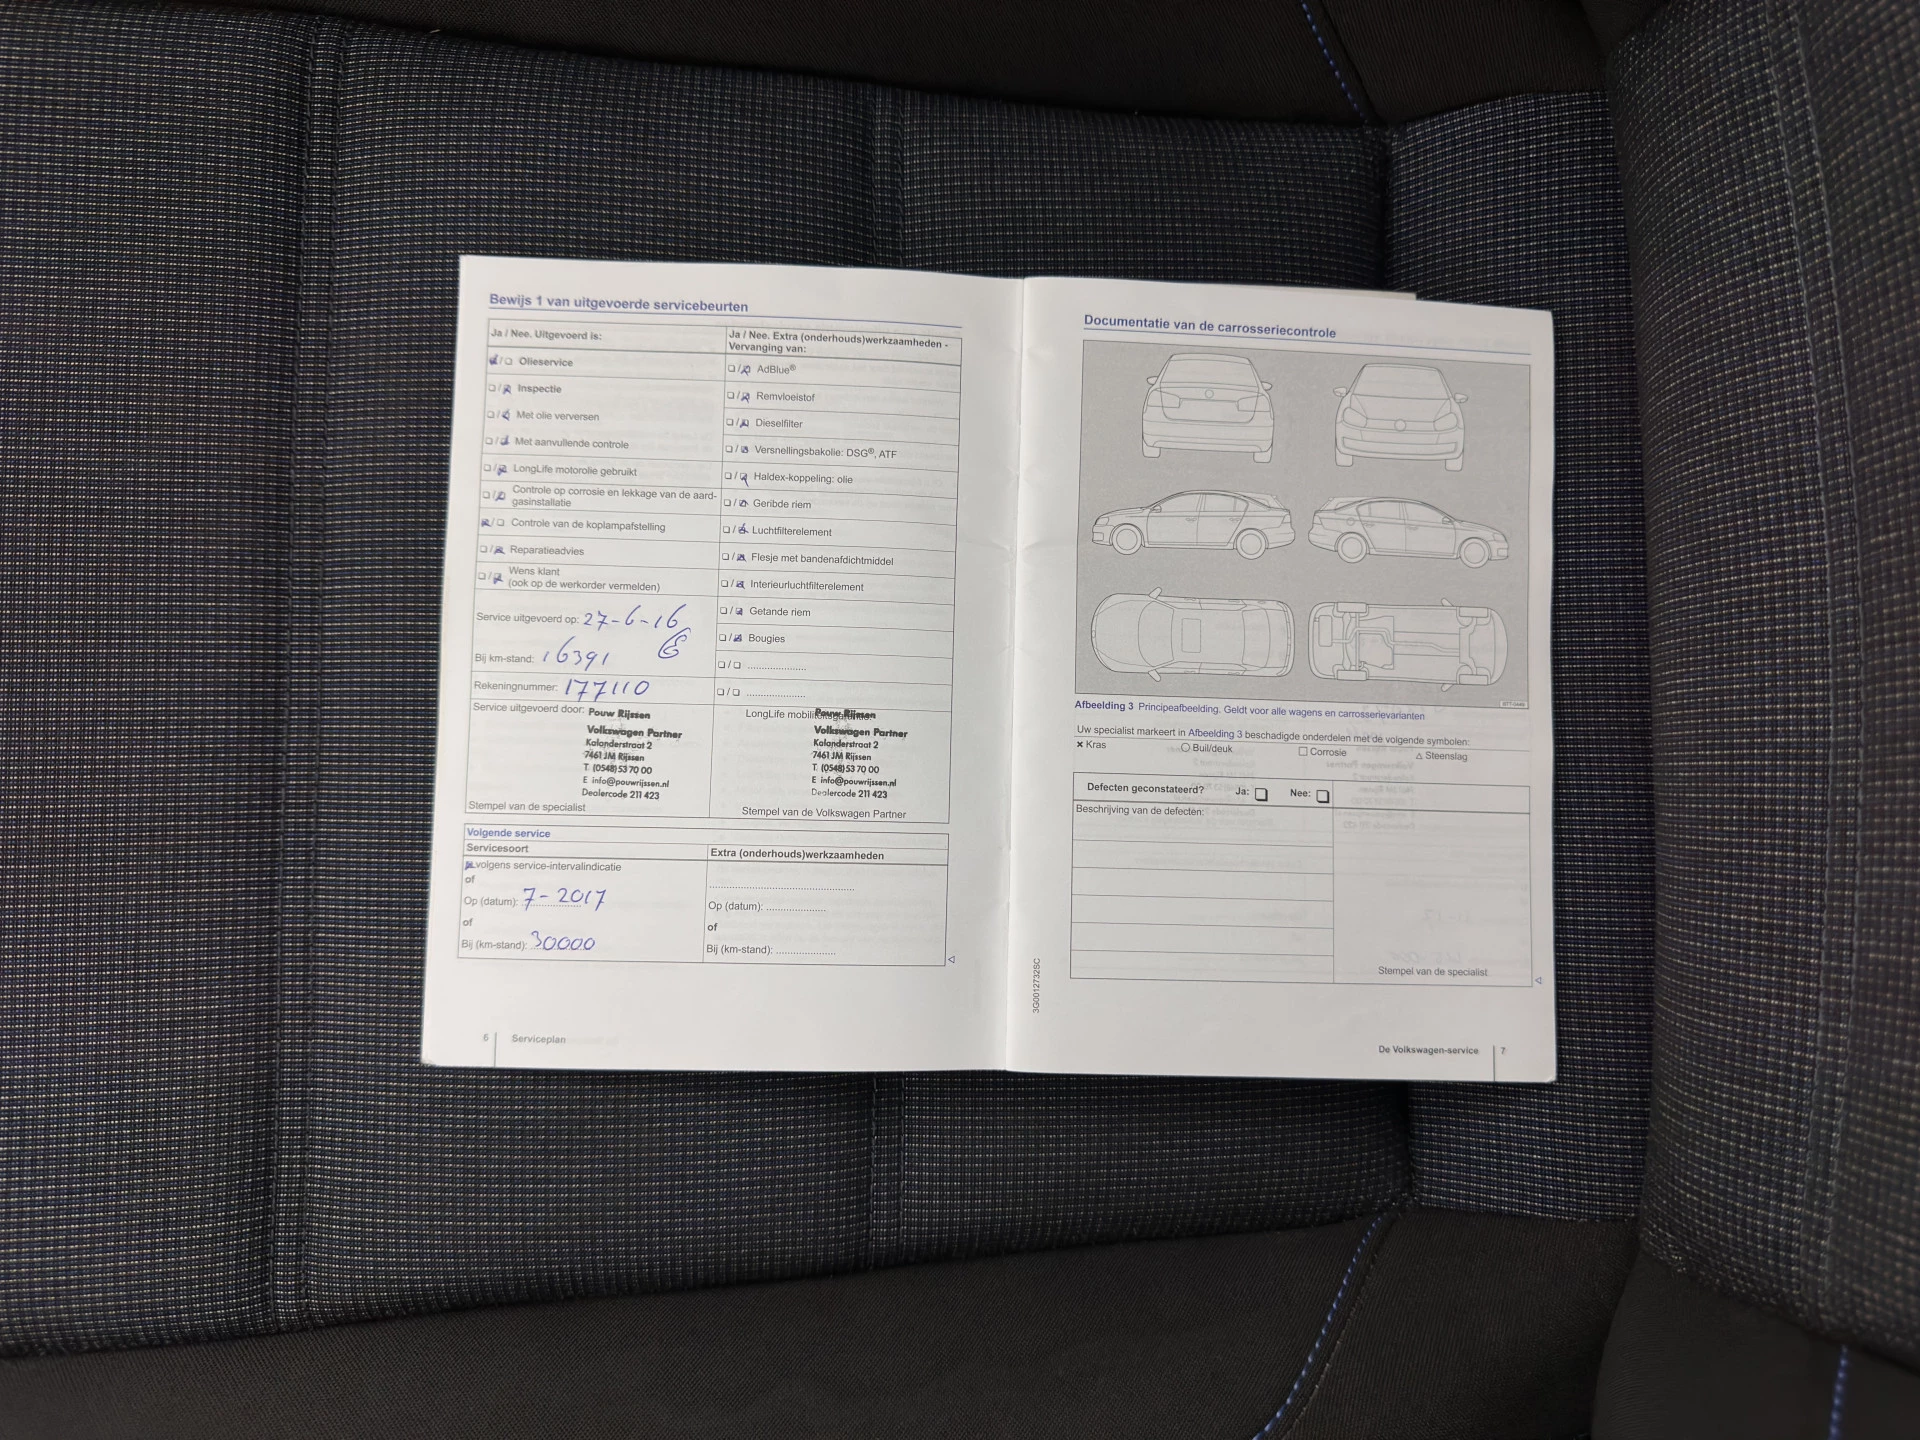 Bewijs 1 van uitgevoerde servicebeurten
Ja / Nee. Uitgevoerd is:
Olieservice
Inspectie
Met olie verversen
Met aanvullende controle
LongLife motorolie gebruikt
Controle op corrosie en lekkage van de aard-
gasinstallatie
Controle van de koplampafstelling
Reparatieadvies
Wens klant
(ook op de werkorder vermelden)
Service uitgevoerd op: 27-6-16
Bij km-stand: 16391
Rekeningnummer: 177110
Service uitgevoerd door: Pouw Rijssen
Volkswagen Partner
Kalanderstraat 2
7461 JM Rijssen
T (0548) 53 70 00
E info@pouwrijssen.nl
Dealercode 211 423
Stempel van de specialist
Ja / Nee. Extra (onderhouds)werkzaamheden -
Vervanging van:
AdBlue®
Remvloeistof
Dieselfilter
Versnellingsbakolie: DSG®, ATF
Haldex-koppeling: olie
Geribde riem
Luchtfilterelement
Flesje met bandenafdichtmiddel
Interieurluchtfilterelement
Getande riem
Bougies
LongLife
Pouw Rijssen
Volkswagen Partner
Kalanderstraat 2
7461 JM Rijssen
T. (0548) 53 70 00
E info@pouwrijssen.nl
Dealercode 211 423
Stempel van de Volkswagen Partner
Volgende service
Servicesoort
volgens service-intervalindicatie
of
Op (datum): 7-2017
of
Bij (km-stand): 30000
Extra (onderhouds)werkzaamheden
Op (datum):
of
Bij (km-stand):
6 Serviceplan
Documentatie van de carrosseriecontrole
Afbeelding 3 Principeafbeelding. Geldt voor alle wagens en carrosserievarianten
Uw specialist markeert in Afbeelding 3 beschadigde onderdelen met de volgende symbolen:
× Kras ○ Buil/deuk □ Corrosie △ Steenslag
Defecten geconstateerd? Ja: Nee:
Beschrijving van de defecten:
Stempel van de specialist
3G0012732SC
De Volkswagen-service 7